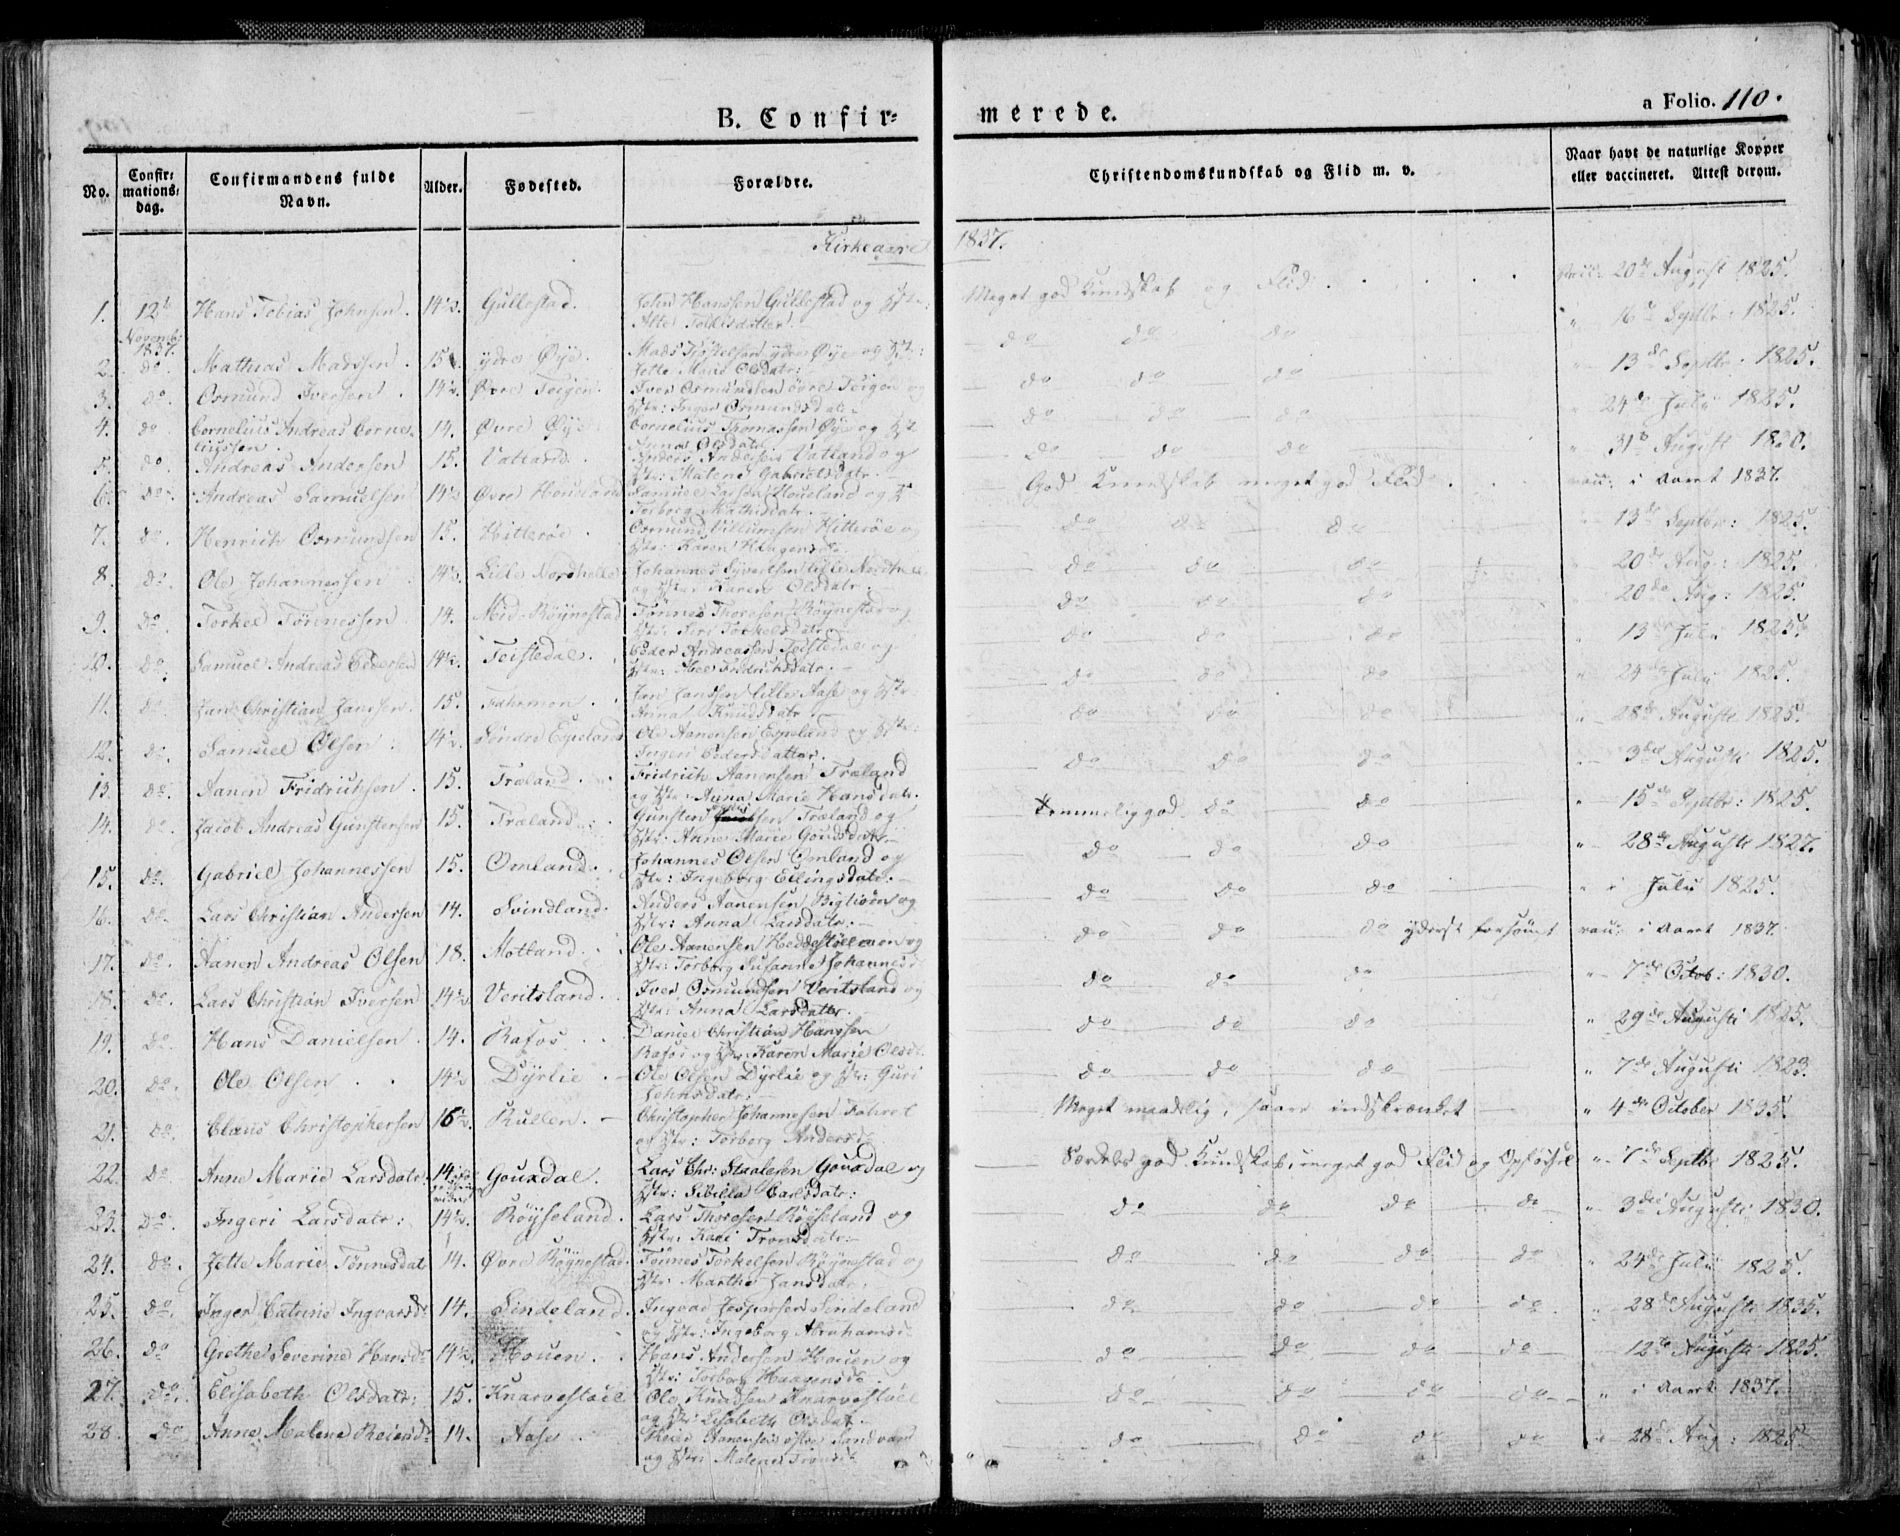 B. Confir=
merede.
a Folio. 110.
No.
Confir=
mations=
dag.
Confirmandens fulde
Navn.
Alder.
Fødested.
Forældre.
Christendomskundskab og Flid m. v.
Naar havt de naturlige Kopper
eller vaccineret. Attest derom.
Kirkeaaret
1837.
1. 12te Hans Tobias Johnsen. 14½. Gullestad. John Hanssen Gullestad og Hstr:
Novemb:
1837.
Meget god Kundskab og Flid. 20de August 1825.
2. do. Mathias Madssen. 15 ydre Øye. Mads ydre Øye og Hstr:
Jette Marie Olsdatr:
do do do 16 Septbr: 1825.
3. do. Osmund Iversen. 14½ Øvre Teigen. Iver Osmundsen øvre Teigen og
Hstr: Inger Osmundsdatr.
do do do 13de Septbr. 1825.
4. do Cornelius Andreas Corne=
liussen. 14. Øvre Øye. Cornelius Thomassen Øye og Hst
Anna Olsdatr
do do do 24de July 1825.
5. do. Andreas Andersen 15. Vatland. Anders Andersen Vatland og
Hstr: Malene Gabrielsdatr.
do do do 31te August 1830.
6. do. Andreas Samuelsen 14½ Øvre Houeland Samuel Larsen Houeland og H
Torborg
God Kundskab meget god Flid. vau: i Aaret 1837.
7. do. Henrich Osmundsen 15. Hitterøe. Osmund Villumsen Hitterøe og
Hstr: Karen
do do do 13de Septbr: 1825.
8. do. Ole Johannessen 14½. Lille Nordhelle Johannes Syvertsen lille
og Hstr Karen Olsdatr.
do do do 20de Aug: 1825.
9. do. Torkel Tönnessen. 14. Mid-Röynestad Tönnes Thoresen Röynestad og
Hstr: Siri Torkelsdatr.
do do do 20de Aug: 1825.
10. do. Samuel Andreas Pedersen 14½. Teistedal. Peder Andreassen Teistedal og
Hstr: Abel Fridrichsdatr.
do do do 13de July 1825.
11. do Jan Christian Janssen. 15. Fahrmon. Jan Janssen lille Aase og Hstr
Anna Knudsdatr.
do do do 24de July 1825.
12. do. Samuel Olsen. 14½. Söndre Espeland Ole Aanensen Espeland og Hstr:
Ingeri Pedersdatter.
do do do 28de Augusti 1825.
13. do. Aanen Fridrichsen. 15. Træland. Fridrich Aanensen Træland
og Hstr: Anna Marie Hansdatr.
do do do 3die Augusti 1825.
14. do. Jacob Andreas Gunstensen 15. Træland. Gunsten Træland og
Hstr: Anne Marie Goudsdatr.
temmelig god do do 15de Septbr: 1825.
15. do. Gabriel Johannessen 15. Omland. Johannes Olsen Omland og
Hstr: Ingeborg Ellingsdatr.
do do do 28de Augusti 1827.
16. do. Lars Christian Andersen 14. Svindland. Anders Aanensen og
Hstr: Anna Larsdatr.
do do do i July 1825.
17. do. Aanen Andreas Olsen 18. Motland. Ole Aanensen og
Hstr: Torborg Susanne Johannesd
do do do yderst forsömt vau: i Aaret 1837.
18. do. Lars Christian Iversen 14½ Veritsland. Iver Osmundsen Veritsland og
Hstr: Anna Larsdatr.
do do do 7de Octob: 1830.
19. do. Hans Danielsen. 14. Rafos. Daniel Christian Hanssen
Rafos og Hstr: Karen Marie Olsdt.
do do do 29de Augusti 1825.
20. do. Ole Olsen. 14½ Dyrlie. Ole Olsen Dyrlie og Hstr: Guri
Johnsdatr.
do do do 7de Augusti 1823.
21. do. Claus Christophersen 16½. Kullen. Christopher Johannessen Fahret
og Hstr: Torborg Andersd
Meget maadelig, saare indskrænket 4de October 1835.
22. do Anne Marie Larsdatr 14 Gouxdal. Lars Chr: Staalesen Gouxdal og
Hstr: Sibilla Carlsdatr:
Særdeles god Kundskab, meget god Flid og Opförsel 7de Septbr 1825.
23. do. Ingeri Larsdatr: 14½. Röyseland. Lars Thoresen Röyseland og
Hstr: Kari Tronsdatr.
do do do do 3die Augusti 1830.
24. do. Jette Marie Tönnesdat 14. Øvre Röynestad. Tönnes Torkelsen Röynestad og
Hstr: Marthe Jansdatr.
do do do do 24de July 1825.
25. do. Inger Catrine Ingvarsd 14. Sindeland. Ingvar Jespersen Sindeland
og Hstr: Ingeborg Abrahamsd
do do do do 28de Augusti 1835.
26. do Grethe Severine Hansdr 14½. Houen. Hans Andersen Houen og
Hstr: Torborg Haagensd
do do do do 12te Augusti 1825.
27. do. Elisabeth Olsdatr: 15. Knarvestöel. Ole Knudsen Knarvestöel
og Hstr: Lisabeth Olsdat
do do do do i Aaret 1837.
28. do Anne Malene Reiersdr 14. Aase. Reier Aanensen
og Hstr: Malene Tronsd
do do do do 28de Aug: 1825